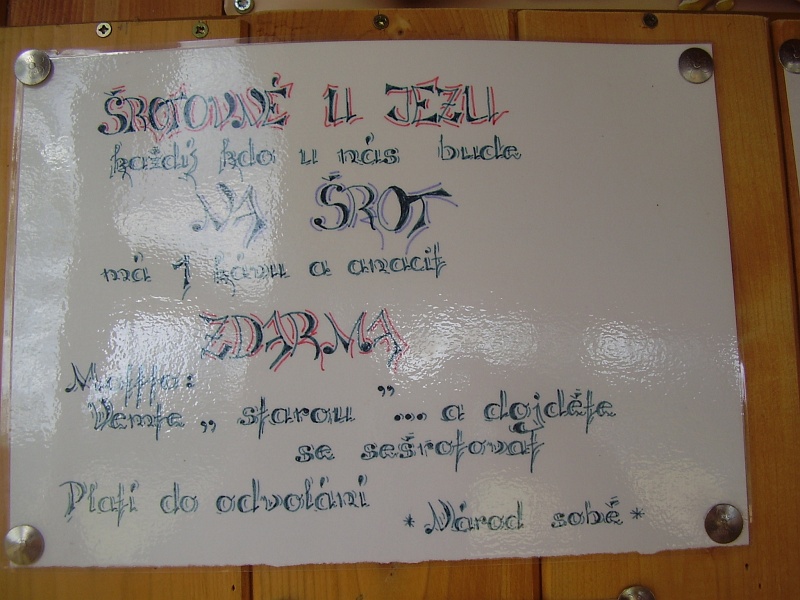 ŠROTOVNÉ U JEZU
každý kdo u nás bude
NA ŠROT
má 1 kávu a anacit
ZDARMA
Motto:
Vemte „ starou ”... a dojděte
se sešrotovat
Platí do odvolání
*Národ sobě*